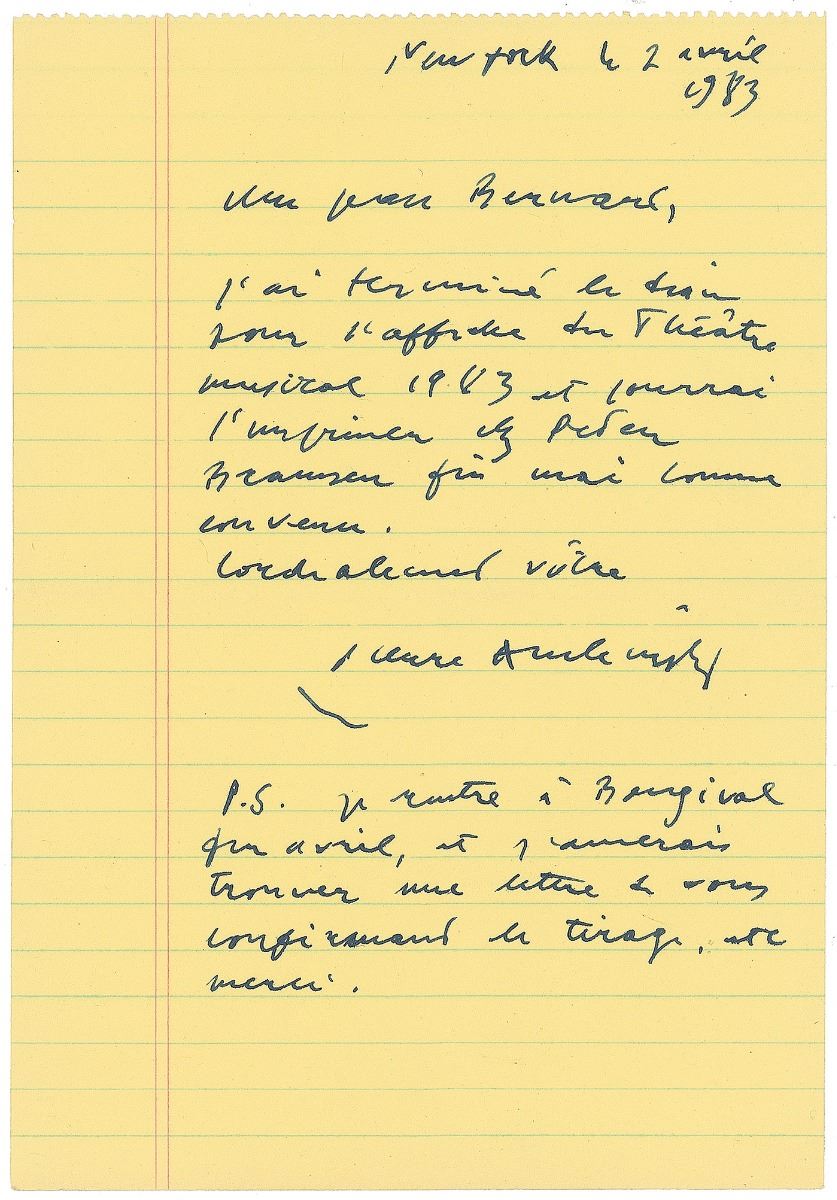 New York le 2 avril
1983
Jean Bernard,
j'ai terminé le
pour l'affiche du Théâtre
musical 1983 et pourrai
l'imprimer chez Peter
Bramsen fin mai comme
convenu.
Cordialement vôtre
Pierre Alechinsky
P.S. je rentre à Bougival
fin avril, et j'aimerais
trouver une lettre de vous
confirmant le tirage, etc
merci.